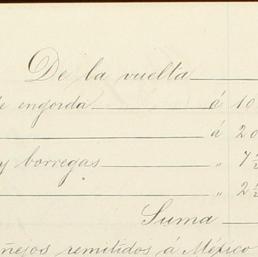 De la vuelta
de engorda á 10
á 20
y borregas " 7
" 2
Suma
ñejos remitidos á México